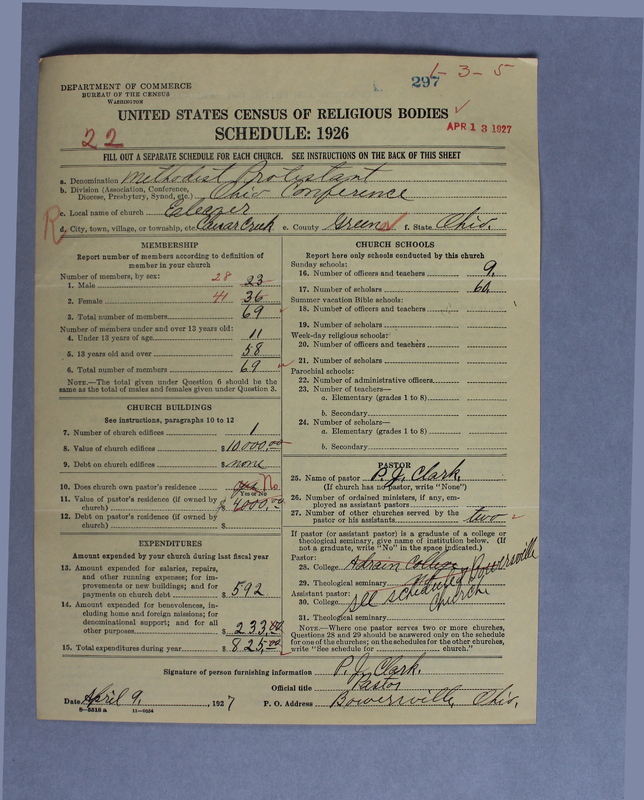 297 1-3-5
DEPARTMENT OF COMMERCE
BUREAU OF THE CENSUS
WASHINGTON
UNITED STATES CENSUS OF RELIGIOUS BODIES
22 SCHEDULE: 1926 APR 13 1927
FILL OUT A SEPARATE SCHEDULE FOR EACH CHURCH. SEE INSTRUCTIONS ON THE BACK OF THIS SHEET
a. Denomination Methodist Protestant
b. Division (Association, Conference, Diocese, Presbytery, Synod, etc.) Ohio Conference
c. Local name of church
R d. City, town, village, or township, etc. e. County Green f. State Ohio.
MEMBERSHIP
Report number of members according to definition of
member in your church
Number of members, by sex:
1. Male 28 23
2. Female 41 36
3. Total number of members 69
Number of members under and over 13 years old:
4. Under 13 years of age 11
5. 13 years old and over 58
6. Total number of members 69
NOTE.—The total given under Question 6 should be the
same as the total of males and females given under Question 3.
CHURCH BUILDINGS
See instructions, paragraphs 10 to 12
7. Number of church edifices 1
8. Value of church edifices $ 10,000.00
9. Debt on church edifices $ none
10. Does church own pastor's residence yes No
Yes or No
11. Value of pastor's residence (if owned by
church) $ 4000.00
12. Debt on pastor's residence (if owned by
church) $
EXPENDITURES
Amount expended by your church during last fiscal year
13. Amount expended for salaries, repairs,
and other running expenses; for im-
provements or new buildings; and for
payments on church debt $ 592
14. Amount expended for benevolences, in-
cluding home and foreign missions; for
denominational support; and for all
other purposes $ 233.00
15. Total expenditures during year $ 825.00
CHURCH SCHOOLS
Report here only schools conducted by this church
Sunday schools:
16. Number of officers and teachers 9.
17. Number of scholars 60.
Summer vacation Bible schools:
18. Number of officers and teachers
19. Number of scholars
Week-day religious schools:
20. Number of officers and teachers
21. Number of scholars
Parochial schools:
22. Number of administrative officers
23. Number of teachers—
a. Elementary (grades 1 to 8)
b. Secondary
24. Number of scholars—
a. Elementary (grades 1 to 8)
b. Secondary
PASTOR
25. Name of pastor P. J. Clark.
(If church has no pastor, write "None")
26. Number of ordained ministers, if any, em-
ployed as assistant pastors
27. Number of other churches served by the
pastor or his assistants two
If pastor (or assistant pastor) is a graduate of a college or
theological seminary, give name of institution below. (If
not a graduate, write "No" in the space indicated.)
Pastor:
28. College Adrain College
29. Theological seminary
Assistant pastor: See schedule of Bowersville
30. College Church
31. Theological seminary
NOTE.—Where one pastor serves two or more churches,
Questions 28 and 29 should be answered only on the schedule
for one of the churches; on the schedules for the other churches,
write "See schedule for church."
Signature of person furnishing information P. J. Clark.
Official title Pastor
Date April 9, 1927 P. O. Address Bowersville, Ohio.
8—5518 a 11—9034